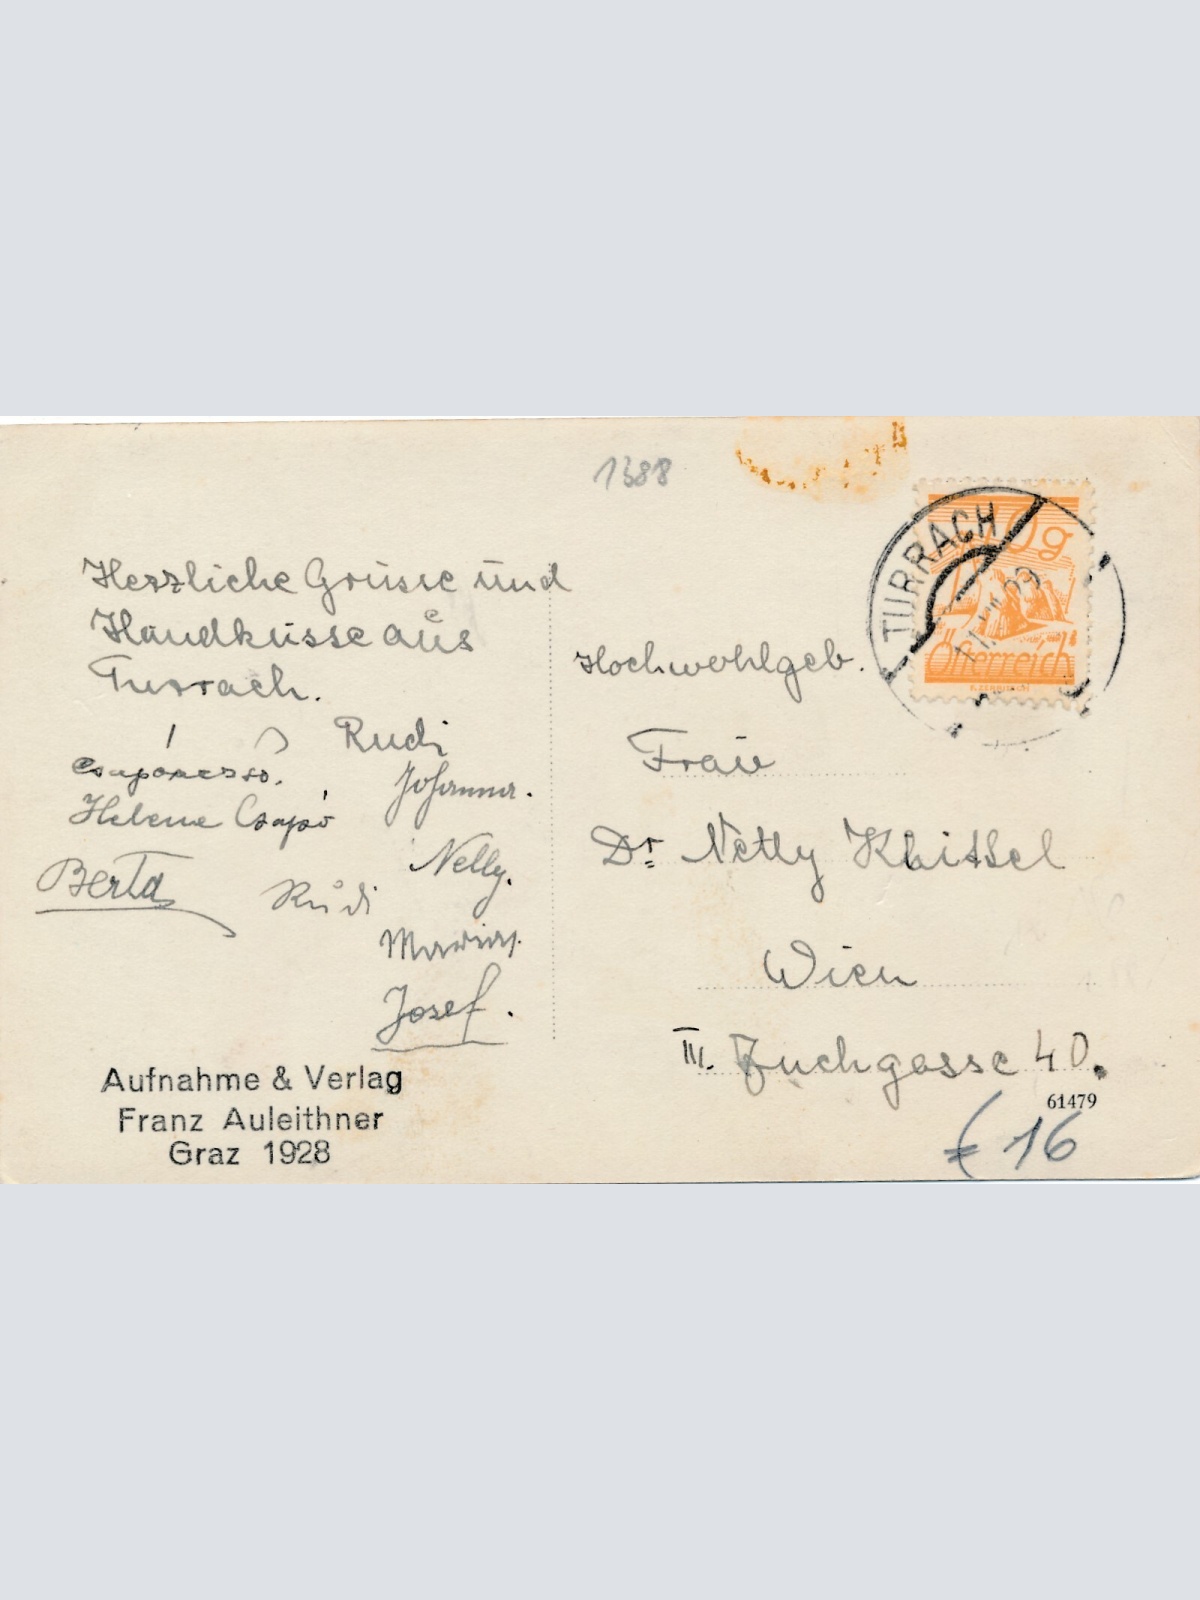 1388
Herzliche Grüsse und
Handküsse aus
Turrach.
Rudi
Johanna.
Helene Csapó
Nelly.
Berta
Rudi
Josef.
Aufnahme & Verlag
Franz Auleithner
Graz 1928
TURRACH
10g
Österreich
Hochwohlgeb.
Frau
Dr. Netty
Wien
III. gasse 40.
61479
€ 16